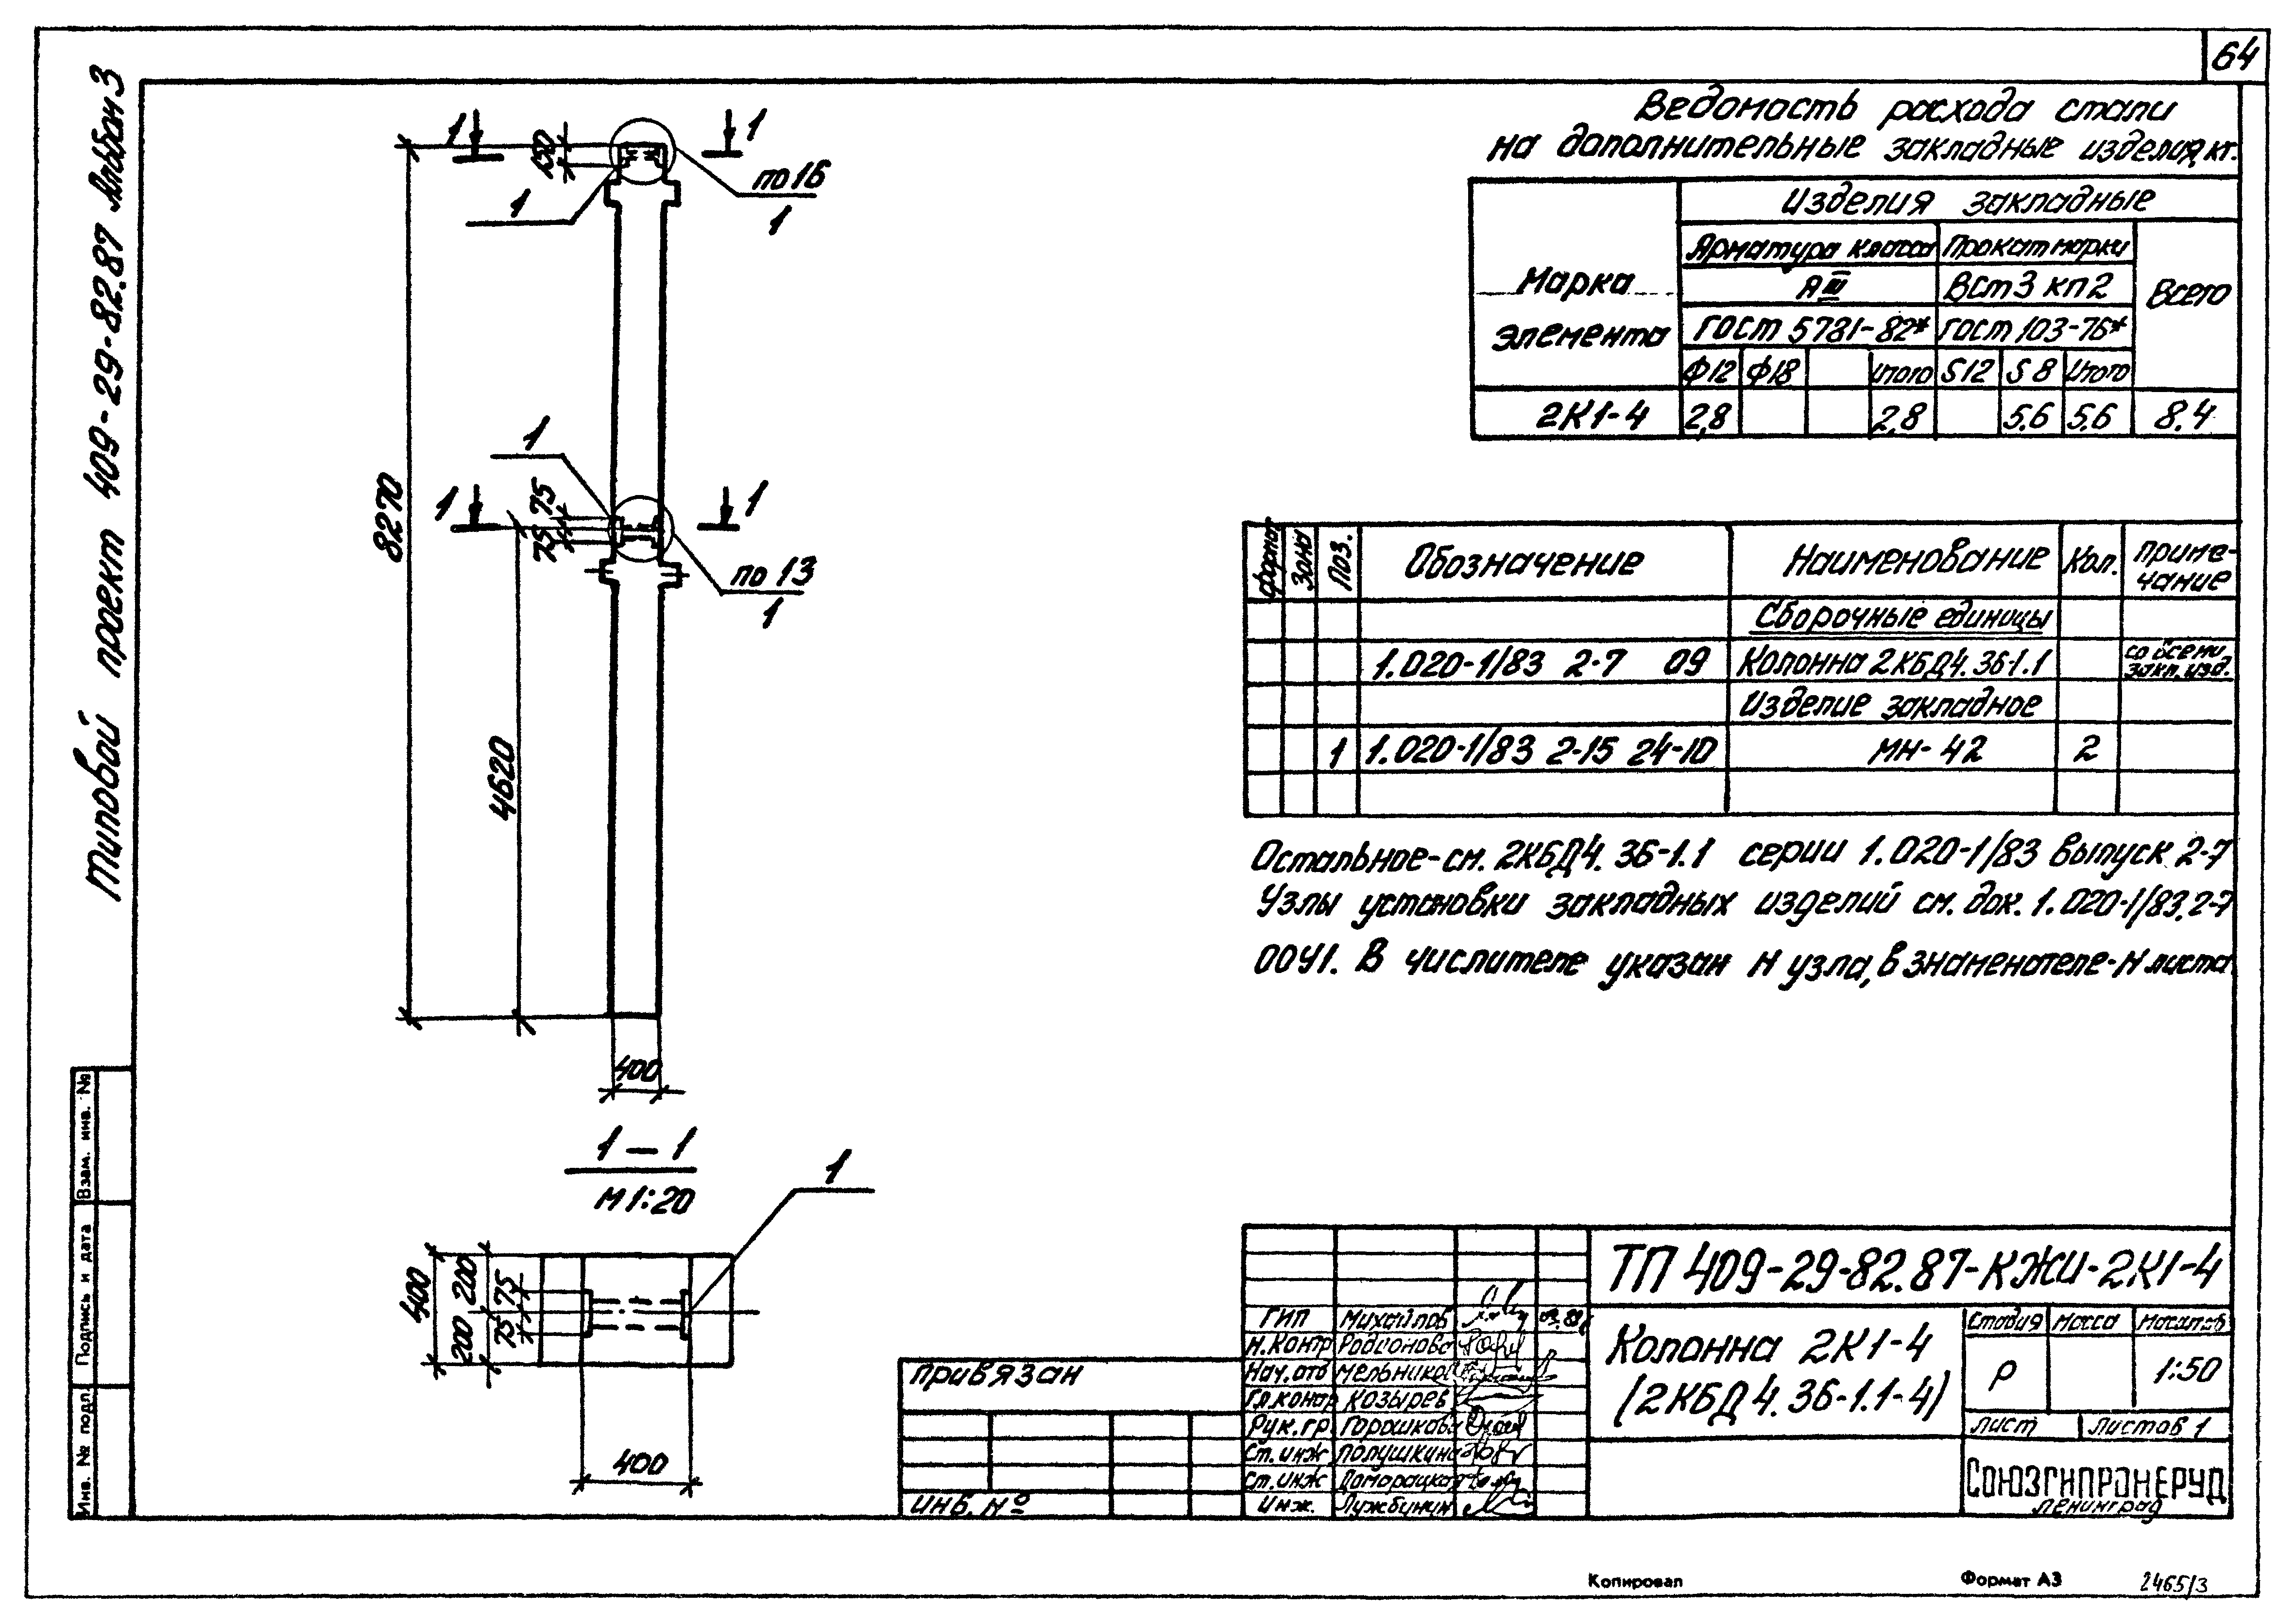 64
Типовой проект 409-29-82.87 Альбом 3
1
1
150
по 16
1
1
8270
1
1
1
75
75
по 13
1
4620
400
1-1
М 1:20
1
400
200
200
75
75
400
Ведомость расхода стали
на дополнительные закладные изделия, кг.
Марка элемента
Изделия закладные
Арматура класса
Прокат марки
Всего
АIII
ВСт3 кп2
ГОСТ 5781-82*
ГОСТ 103-76*
Ф12 Ф18 Итого S12 S8 Итого
2К1-4 2,8 2,8 5.6 5.6 8.4
Формат Зона Поз. Обозначение Наименование Кол. Примечание
Сборочные единицы
1.020-1/83 2-7 09 Колонна 2КБД4.36-1.1 со всеми закл. изд.
Изделие закладное
1 1.020-1/83 2-15 24-10 МН-42 2
Остальное-см. 2КБД4.36-1.1 серии 1.020-1/83 выпуск 2-7
Узлы установки закладных изделий см. док. 1.020-1/83.2-7
00У1. В числителе указан N узла, в знаменателе-N листа
ТП 409-29-82.87-КЖИ-2К1-4
ГИП Михайлов
Н.контр Родионова
Нач.отд Мельников
Гл.констр Козырев
Рук.гр. Горошкова
Ст.инж Полушкина
Ст.инж
Инж.
Колонна 2К1-4
(2КБД4.36-1.1-4)
Стадия Масса Масштаб
Р 1:50
Лист Листов 1
СОЮЗГИПРОНЕРУД
Ленинград
Привязан
Инв. №
Взам. инв. №
Подпись и дата
Инв. № подл.
Копировал
Формат А3
2465/3